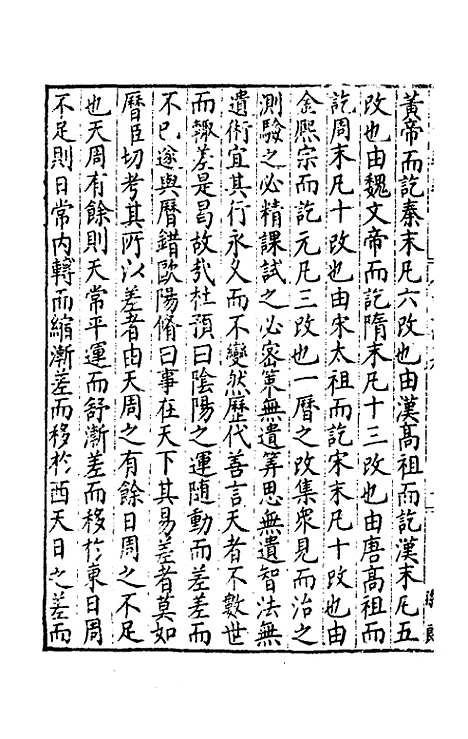 黃帝而訖秦末凡六改也由漢髙祖而訖漢末凡五
改也由魏文帝而訖隋末凡十三改也由唐髙祖而
訖周末凡十改也由宋太祖而訖宋末凡十改也由
金熙宗而訖元凡三改也一曆之改集衆見而治之
測驗之必精課試之必密策無遺筭思無遺智法無
遺術宜其行永久而不變然歷代善言天者不數世
而輙差是曷故㢤杜預曰隂陽之運随動而差差而
不已遂與曆錯歐陽脩曰事在天下其易差者莫如
曆臣切考其所以差者由天周之有餘日周之不足
也天周有餘則天常平運而舒漸差而移於東日周
不足則日常内轉而縮漸差而移於西天日之差而